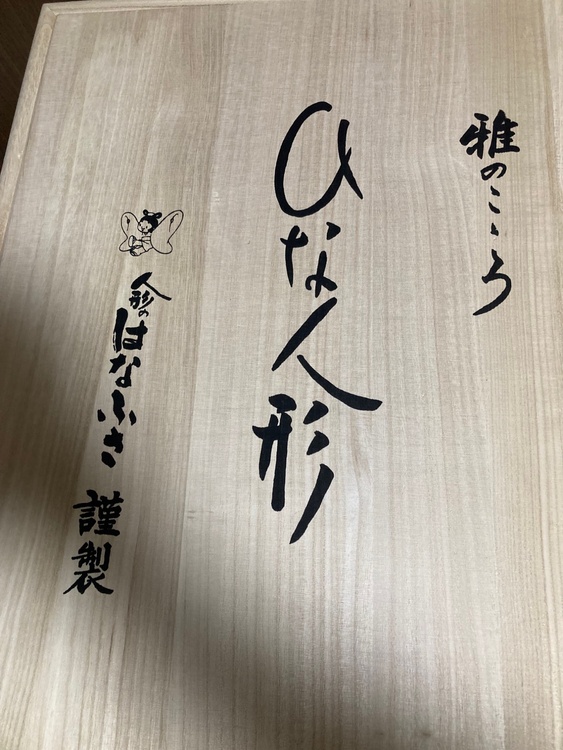 雅のこゝろ
ひな人形
人形のはなふさ 謹製